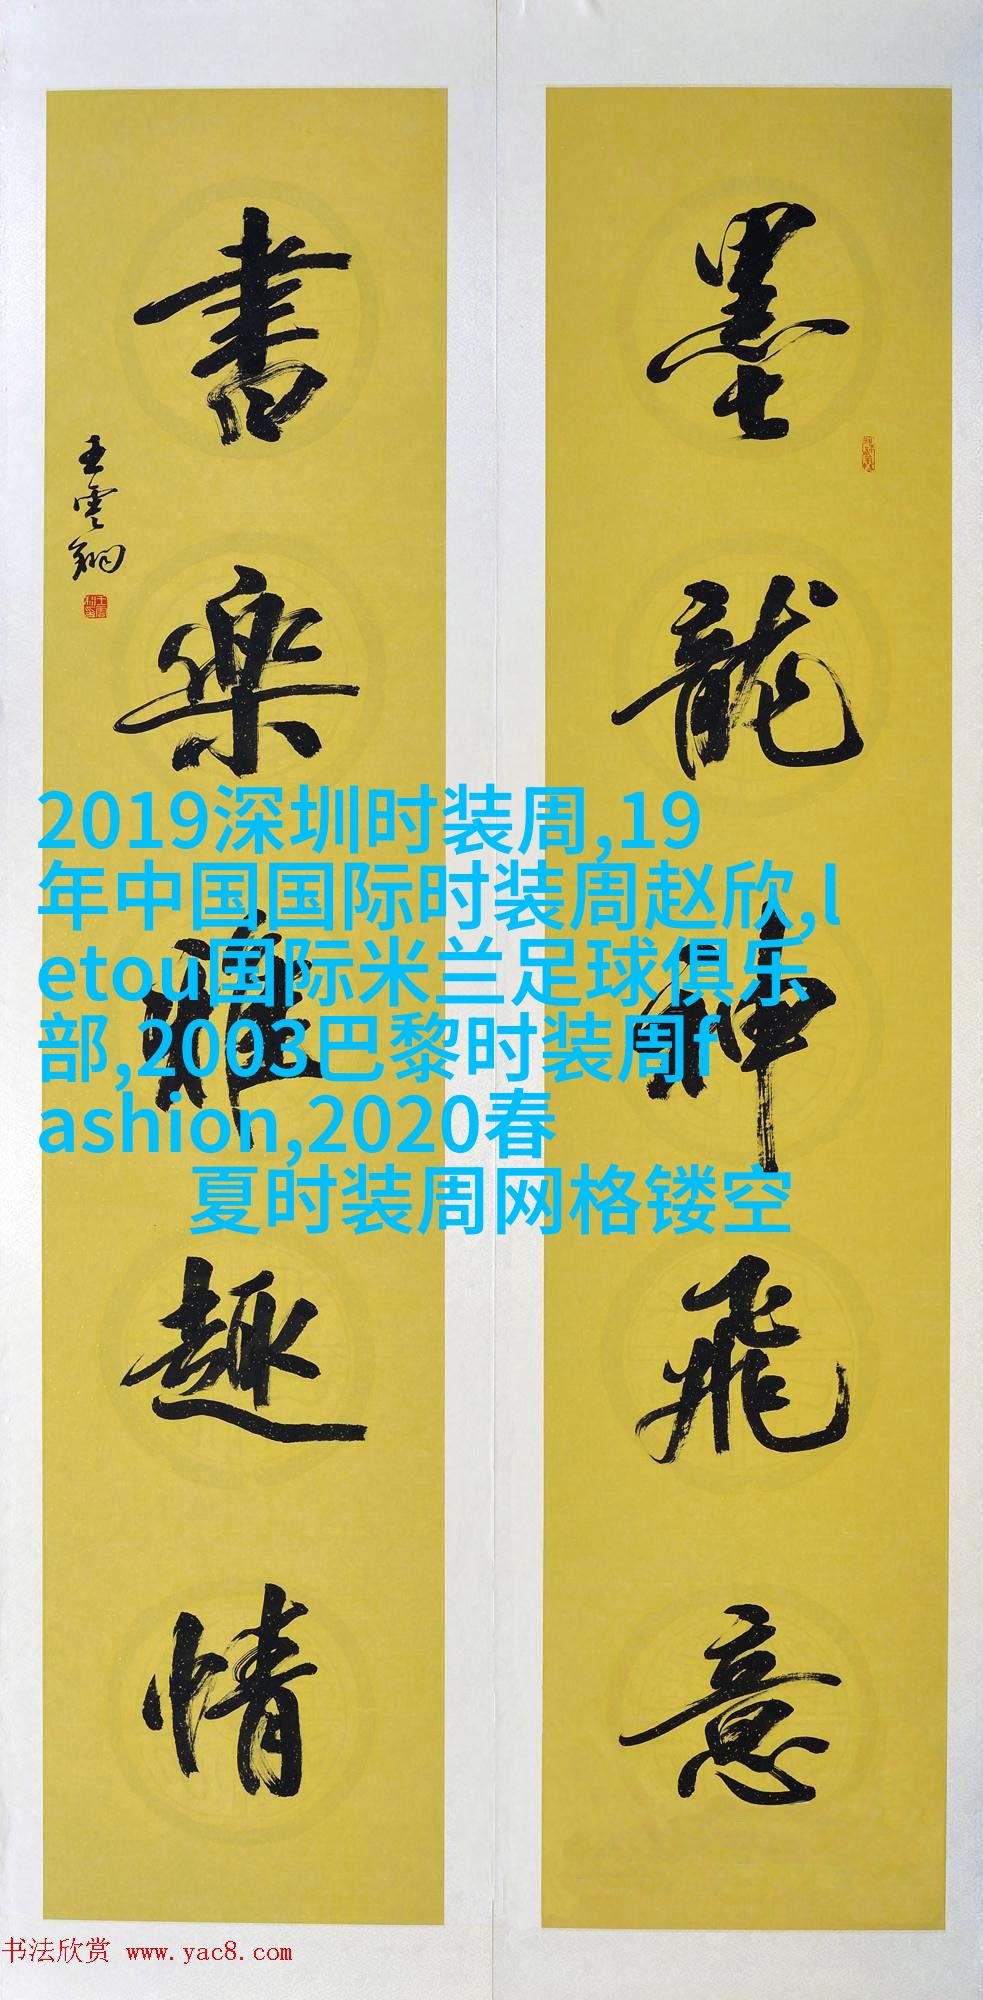 墨龍神飛意
書樂雅趣情
王雲翔
2019深圳时装周,19
年中国国际时装周赵欣,l
etou国际米兰足球俱乐
部,2003巴黎时装周f
ashion,2020春
夏时装周网格镂空
书法欣赏 www.yac8.com